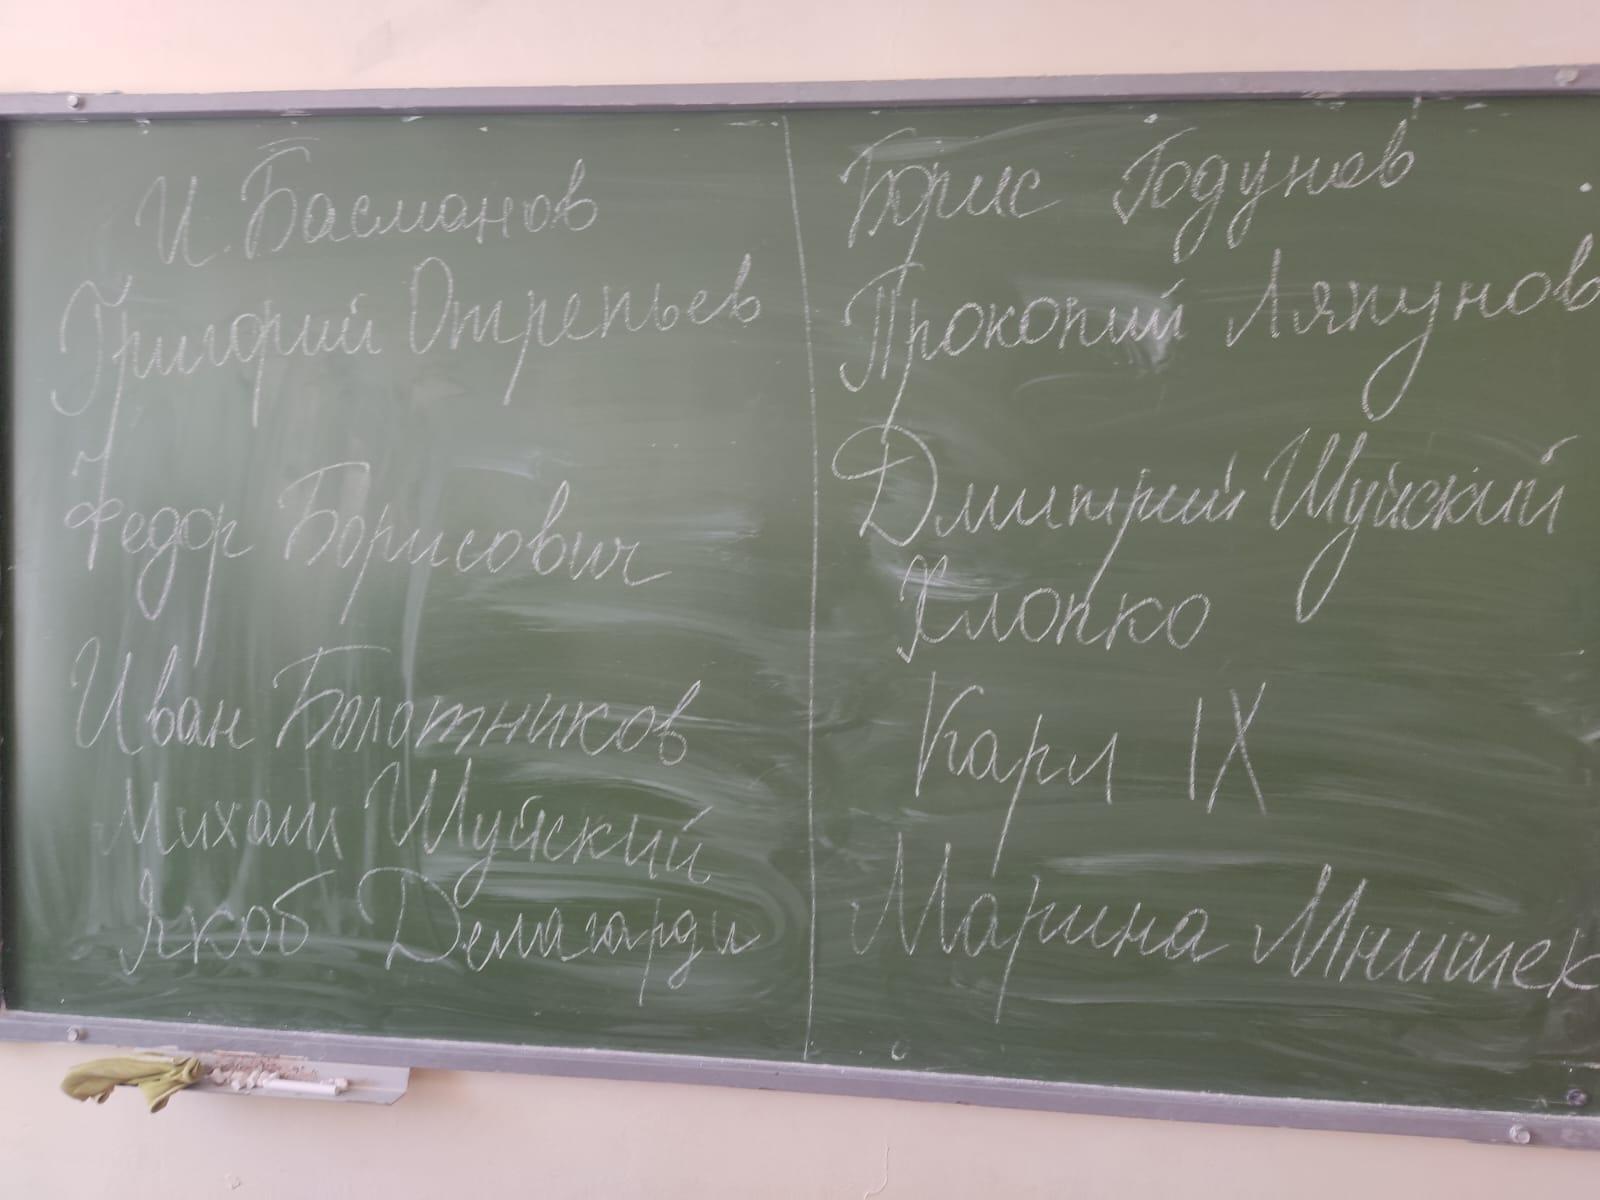 И. Басманов
Григорий Отрепьев
Федор Борисович
Иван Болотников
Михаил Шуйский
Якоб Делагарди
Борис Годунов
Прокопий Ляпунов
Дмитрий Шуйский
Хлопко
Карл IX
Марина Мнишек